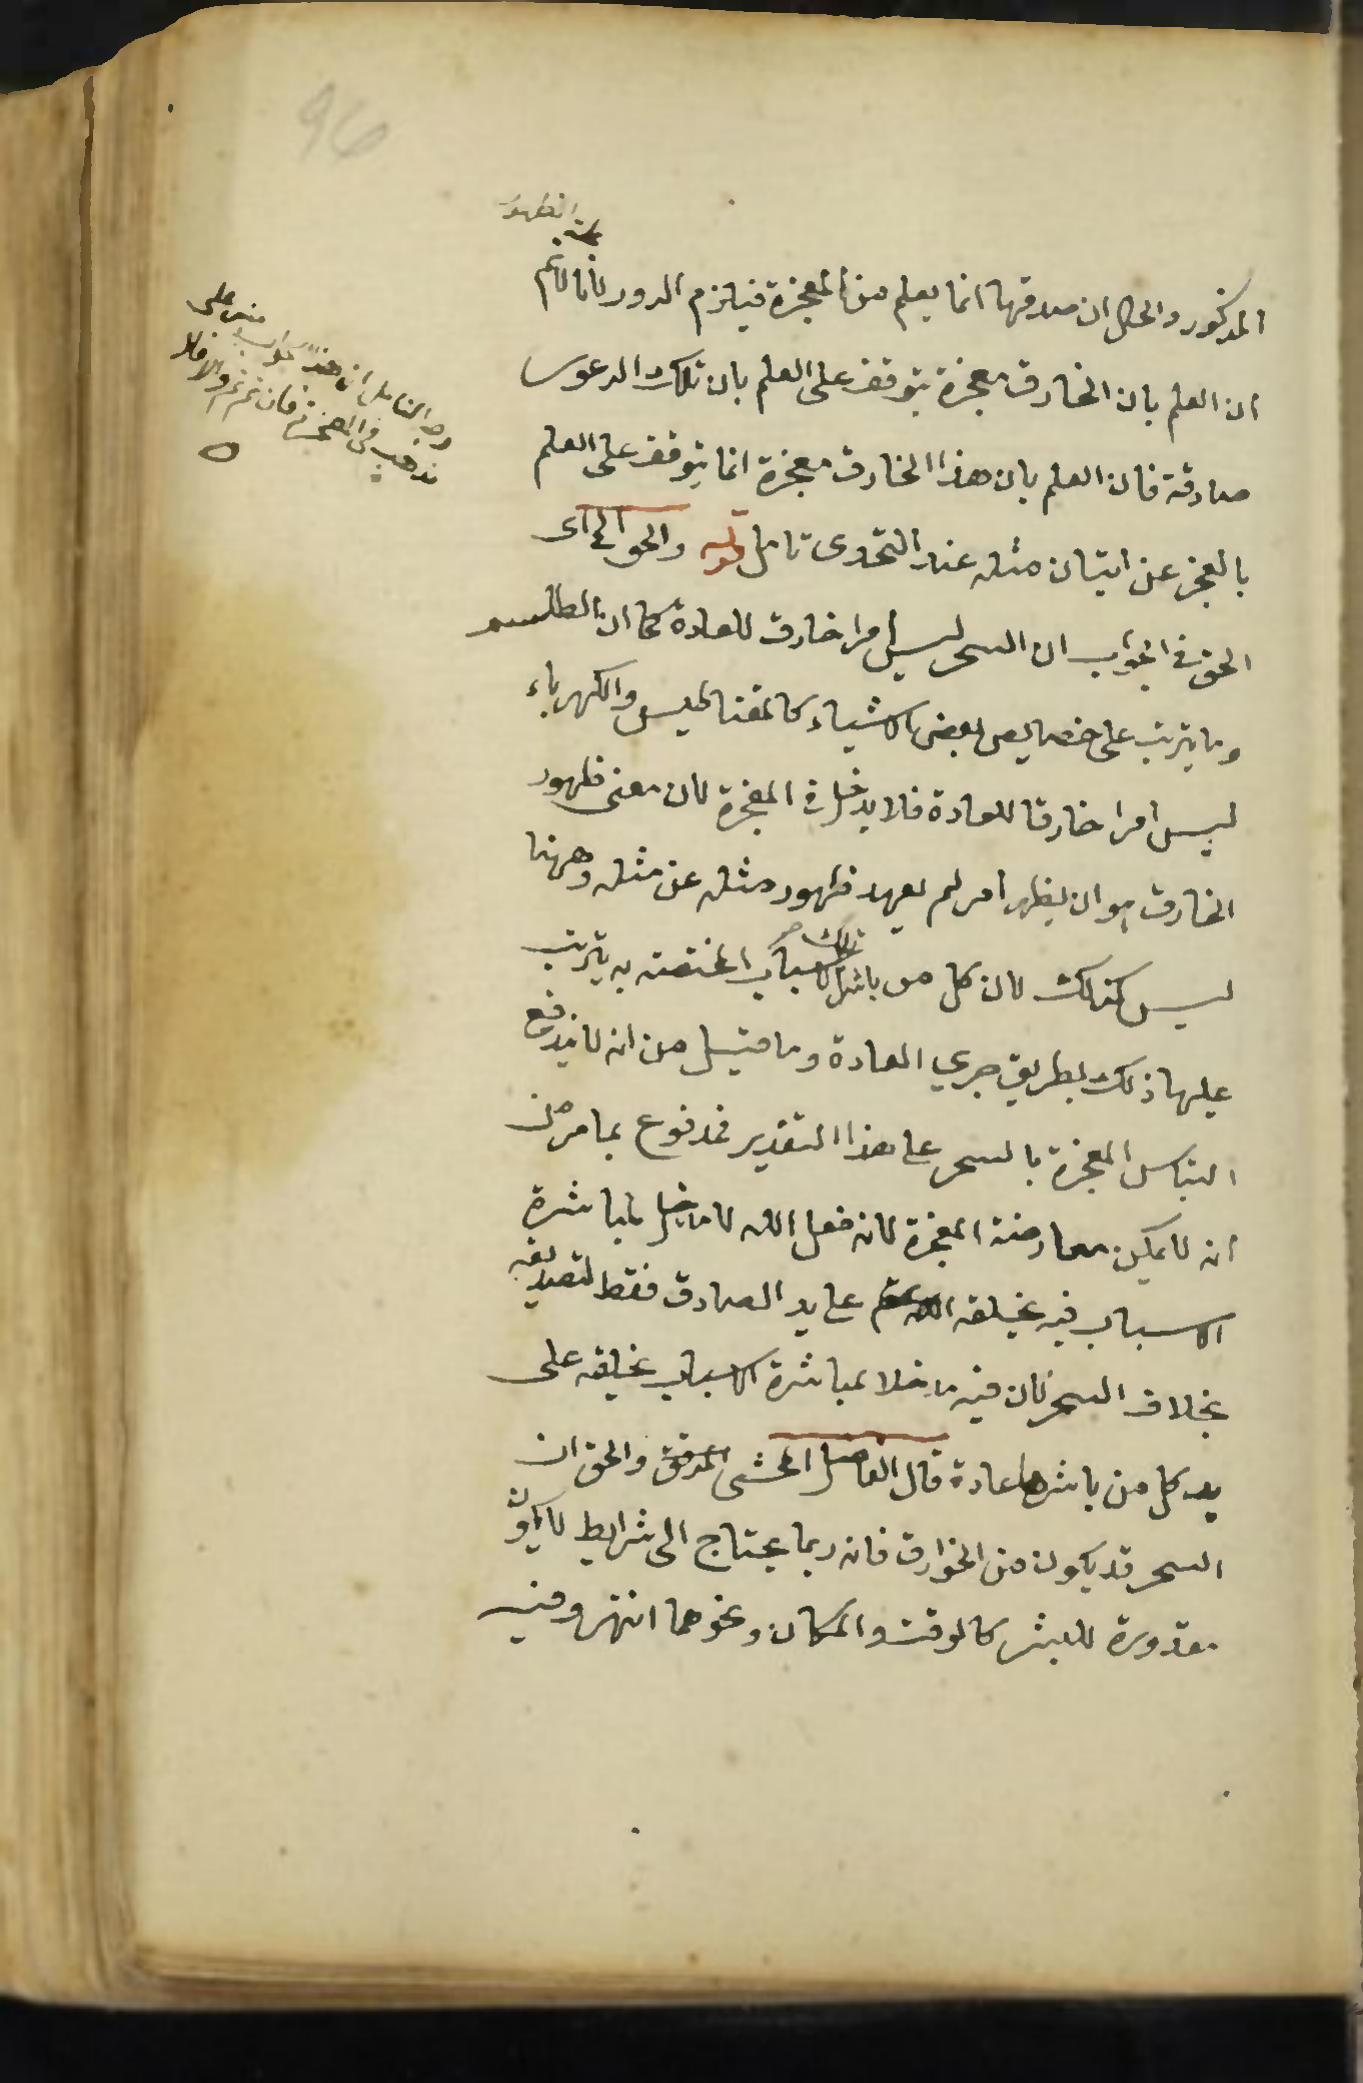 96
المذكور والحال ان صدقها انما يعلم من المعجزة فيلزم الدور لأنا لانم
ان العلم بان الخارق معجزة يتوقف على العلم بان تلك الدعوى
صادقة فان العلم بان هذا الخارق معجزة انما يتوقف على العلم
بالعجز عن اتيان مثله عند التحدى تامل قوله والحق الخ اى
الحق في الجواب ان السحر ليس امرا خارق للعادة كما ان الطلسم
وما يترتب على خصايص بعض الاشياء كالمغناطيس والكهرباء
ليس امرا خارقا للعادة فلا يدخل في المعجزة لان معنى ظهور
الخارق هو ان يظهر امر لم يعهد ظهور مثله عن مثله وههنا
ليس كذلك لان كل من باشر تلك الاسباب المختصة به يترتب
عليها ذلك بطريق جري العادة وما قيل من انه لا يندفع
التباس المعجزة بالسحر على هذا التقدير فمدفوع بما مر من
انه لا يمكن معارضة المعجزة لانه فعل الله لا مدخل لمباشرة
الاسباب فيه يخلقه الله على يد الصادق فقط لتصديقه
بخلاف السحر فان فيه مدخلا لمباشرة الاسباب يخلقه على
يد كل من باشرها عادة قال الفاضل المحشى المدقق والحق ان
السحر قد يكون من الخوارق فانه ربما يحتاج الى شرايط لا يكون
مقدورة للبشر كالوقت والمكان ونحوهما انتهى وفيه
وجه التامل ان هذا الجواب مبنى على
مذهب في المعجزة فان تم تم والا فلا